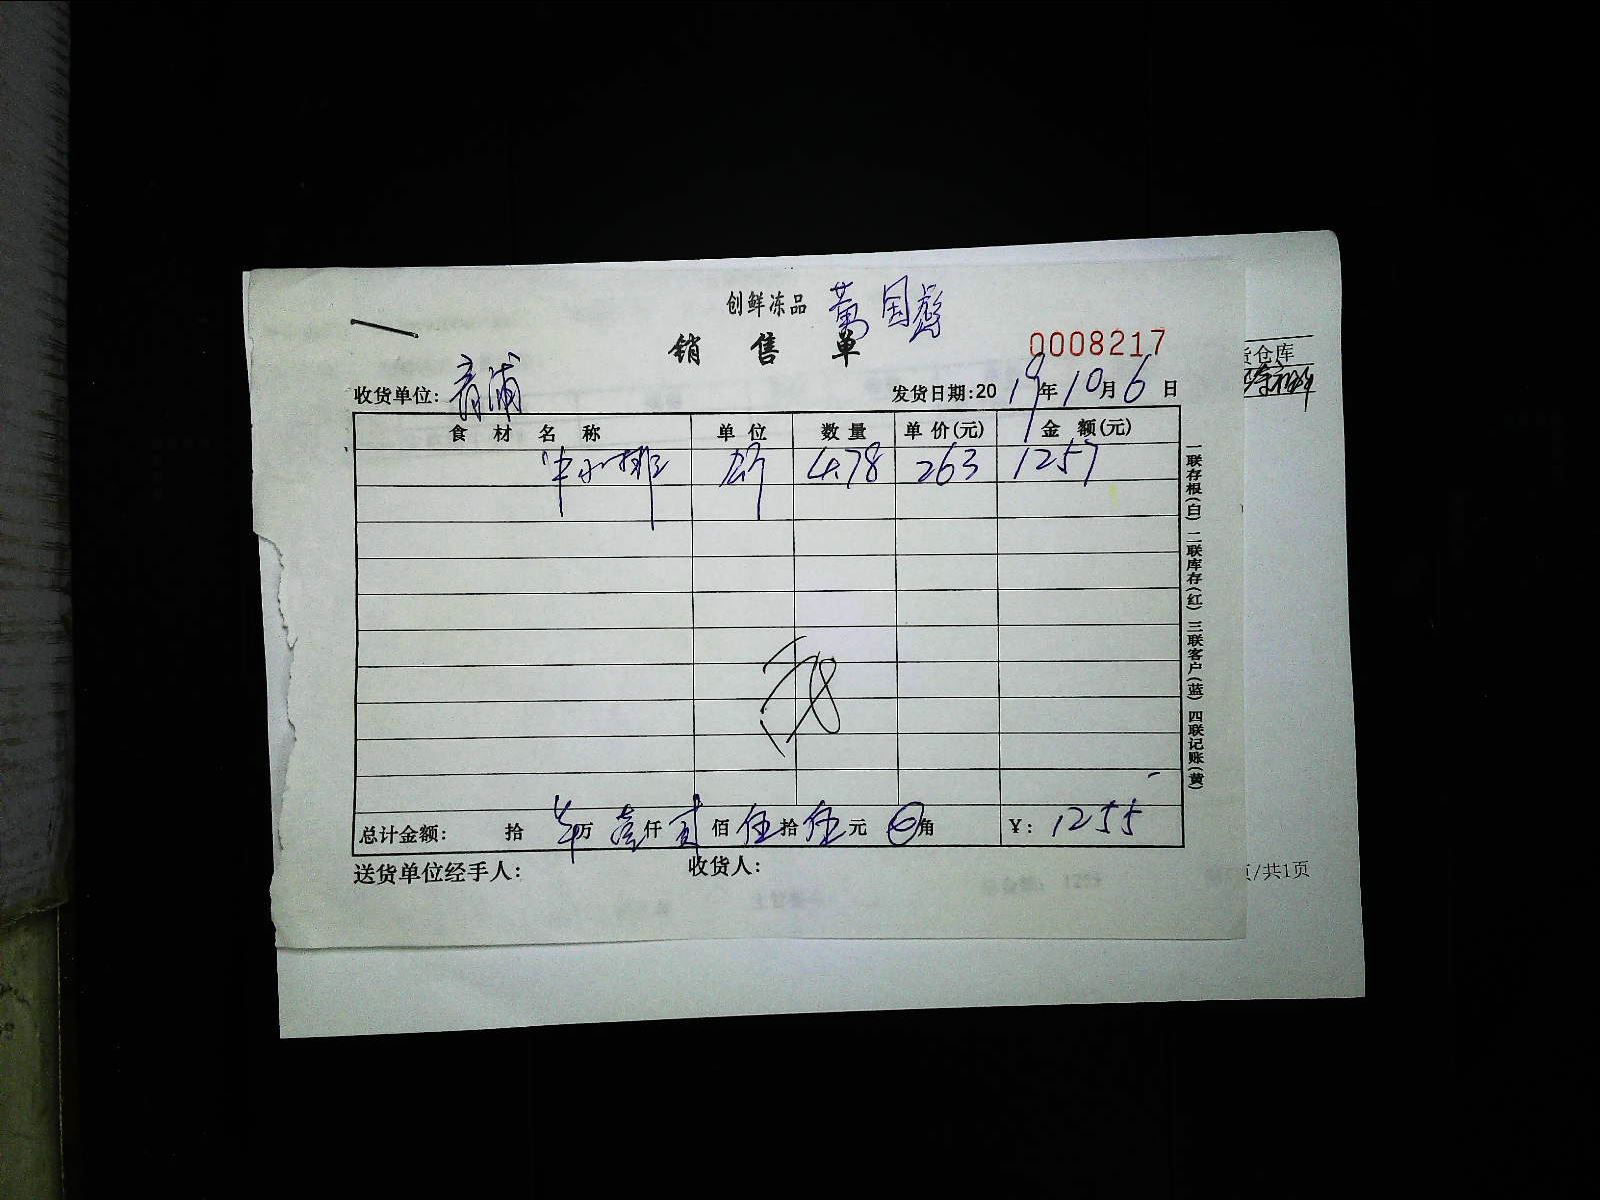 创鲜冻品 黄国彪
销售单 0008217
收货单位: 青浦 发货日期:2019年10月6日
食材名称 单位 数量 单价(元) 金额(元)
牛小排 斤 4.78 263 1257
总计金额: 拾 万 壹仟贰佰伍拾伍元 角 ¥: 1255
送货单位经手人: 收货人:
一联存根(白) 二联库存(红) 三联客户(蓝) 四联记账(黄)
仓库
页/共1页